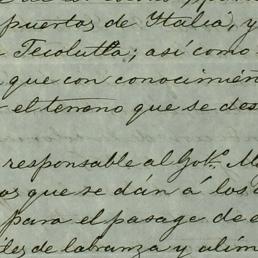 puertos de Italia, y
Tecolutla; así como
que con conocimien
el terreno que se des
responsable al Gob.º M
que se dán á los
para el pasage de
les de labranza y alim